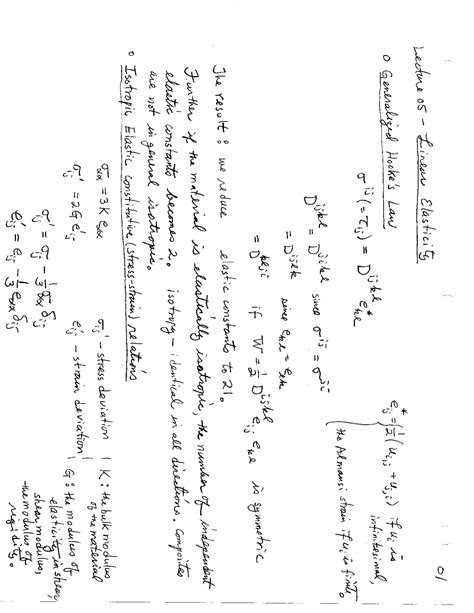 01
Lecture 05 - Linear Elasticity
o Generalized Hooke's Law
σ^{ij} (= τ_{ij}) = D^{ijkl} e*_{kl}
e*_{ij} = { ½(u_{i,j} + u_{j,i}) if u_i is infinitesimal,
the Almansi strain if u_i is finite.
D^{ijkl} = D^{jikl} since σ^{ij} = σ^{ji}
= D^{ijlk} since e_{kl} = e_{lk}
= D^{klij} if W = ½ D^{ijkl} e_{ij} e_{kl} is symmetric
The result : we reduce elastic constants to 21.
Further if the material is elastically isotropic, the number of independent
elastic constants becomes 2. isotropy - identical in all directions. Composites
are not in general isotropic.
o Isotropic Elastic constitutive (stress-strain) relations
σ_{αα} = 3K e_{αα}
σ'_{ij} = 2G e'_{ij}
σ'_{ij} = σ_{ij} - ⅓ σ_{αα} δ_{ij}
e'_{ij} = e_{ij} - ⅓ e_{αα} δ_{ij}
σ'_{ij} - stress deviation
e'_{ij} - strain deviation
K : the bulk modulus
of the material
G : the modulus of
elasticity in shear,
shear modulus,
the modulus of
rigidity.